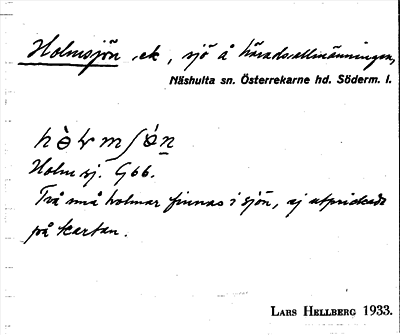 Holmsjön, ek, sjö å häradsallmänningen,
Näshulta sn. Österrekarne hd. Söderm. l.
Holmsj. G66.
Två små holmar finnas i sjön, ej utprickade
på kartan.
LARS HELLBERG 1933.